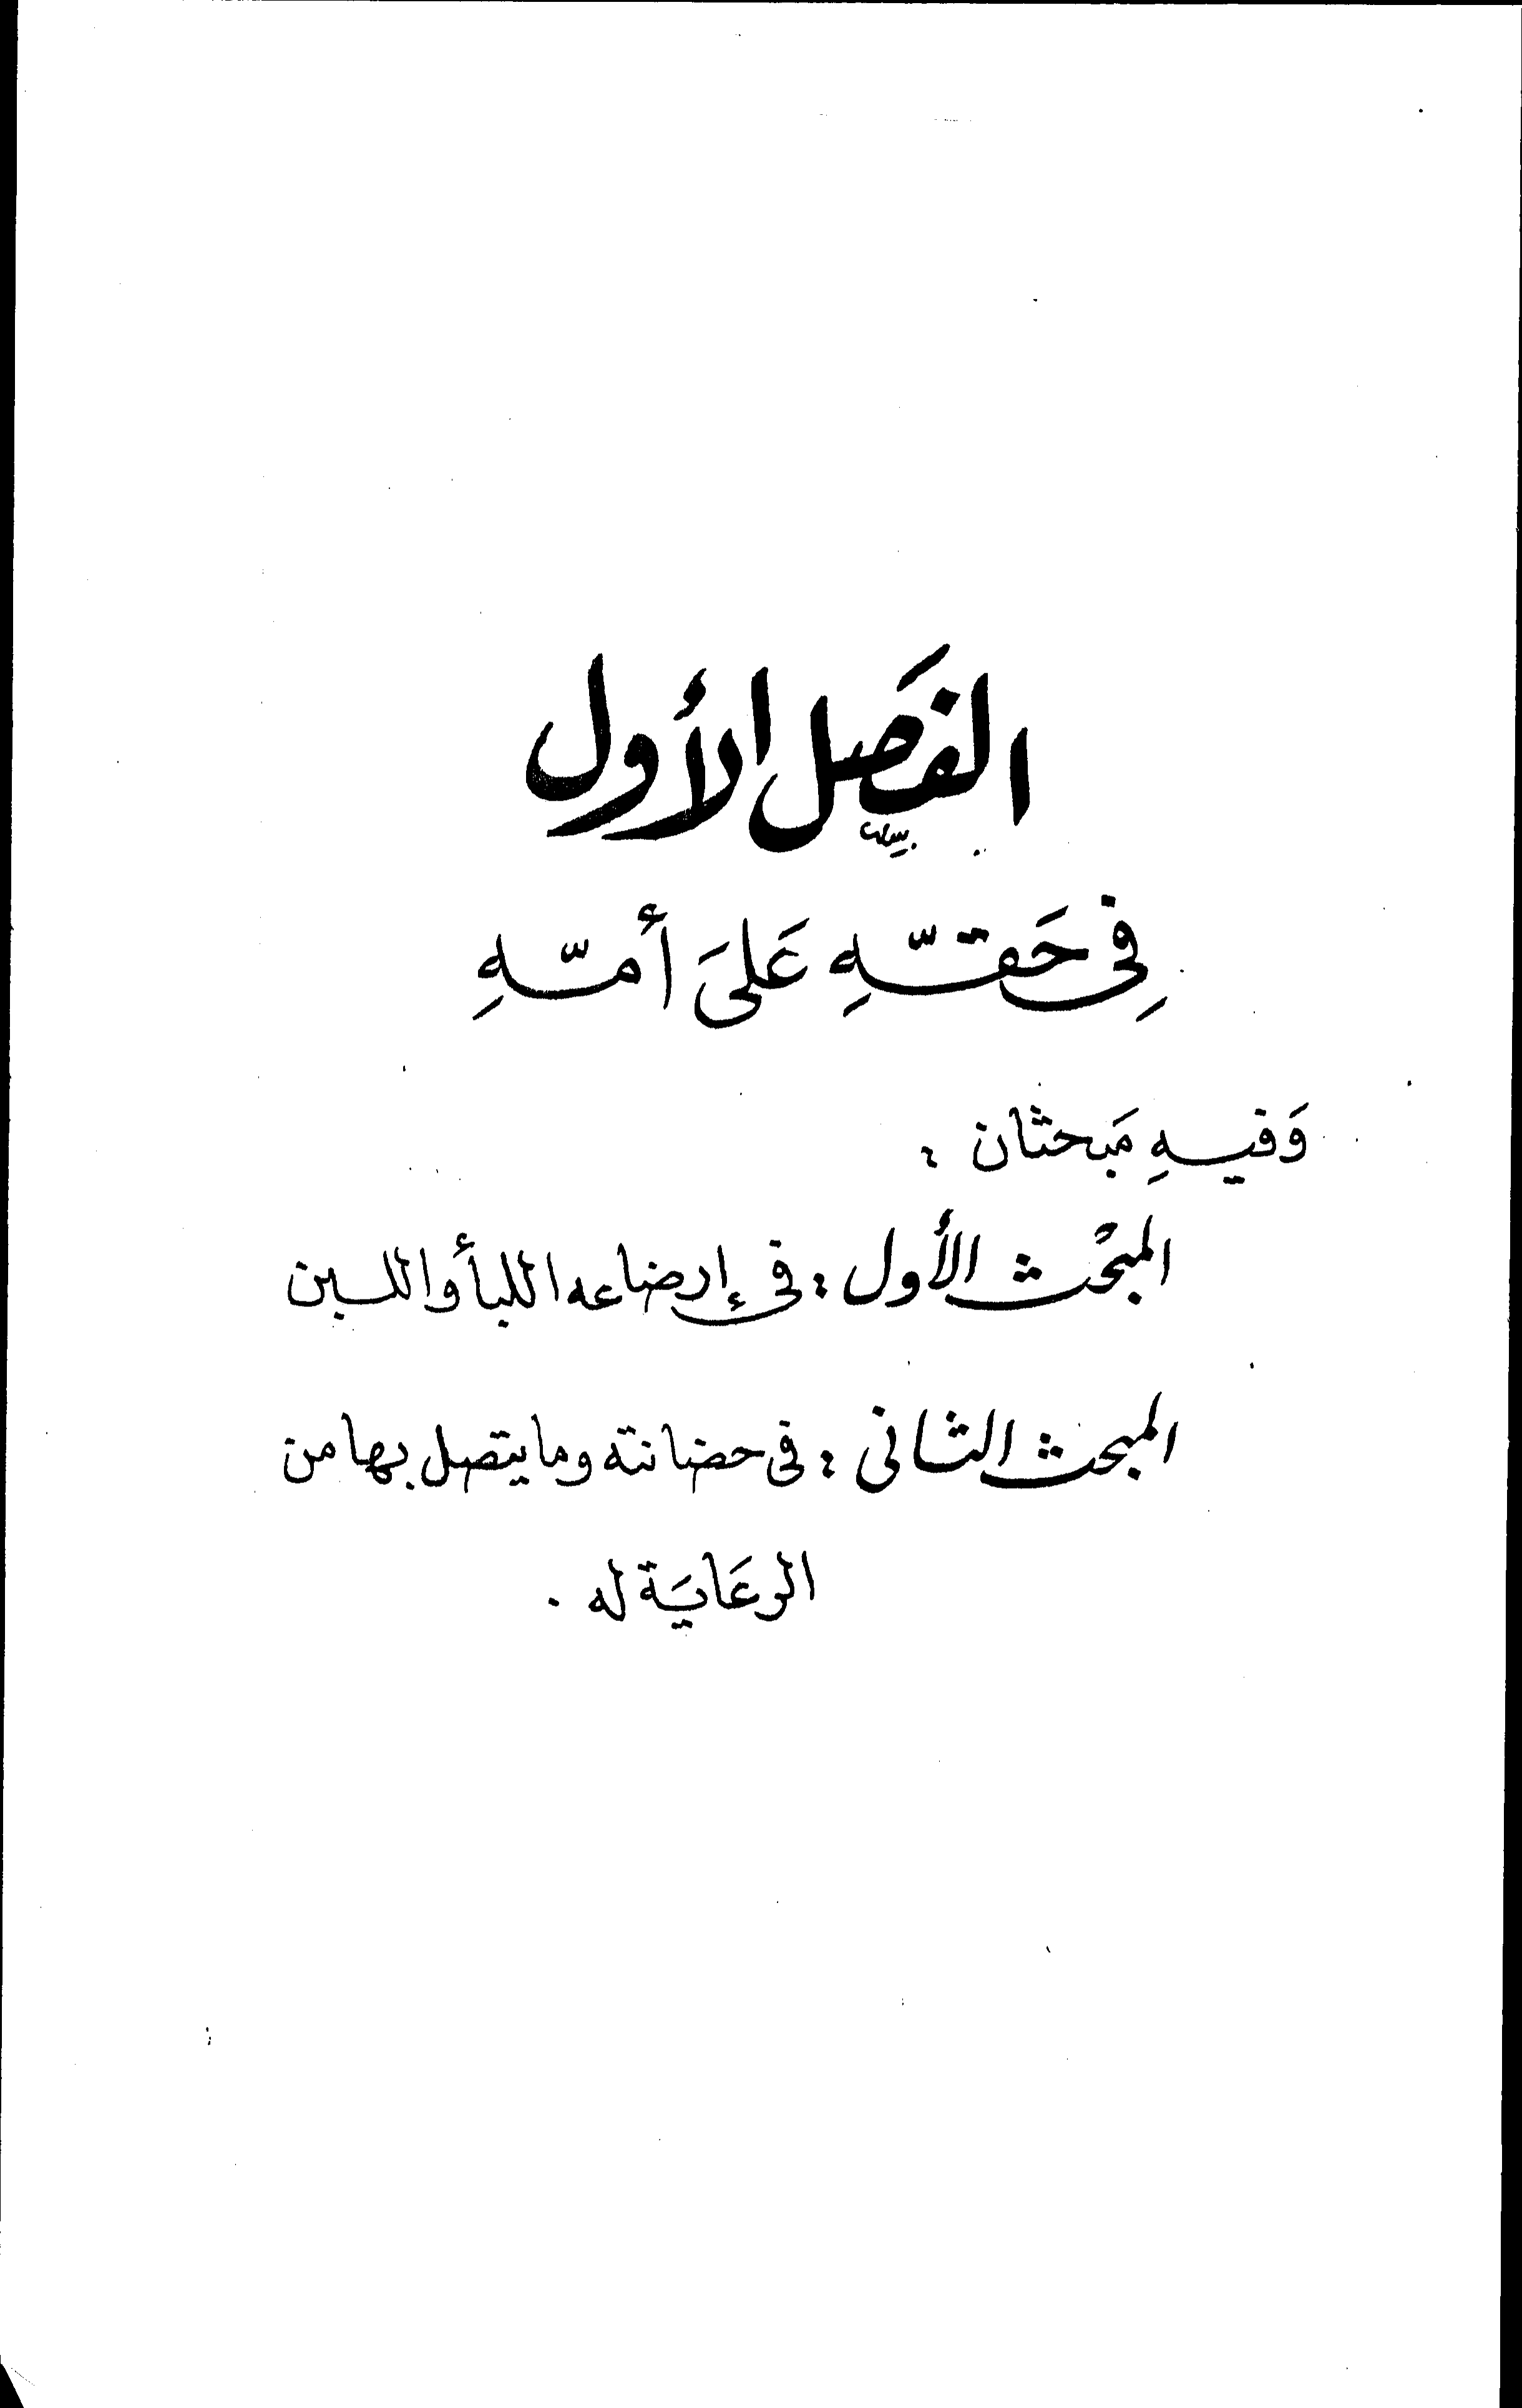 الفَصل الأول
فِي حَقّهِ عَلىَ أمّهِ
وَفيهِ مَبحثان :
المبحَث الأول : في إرضاعه اللبأ واللبن
المبحث الثاني : في حضانته وما يتصل بها من
الرعَايَة له .